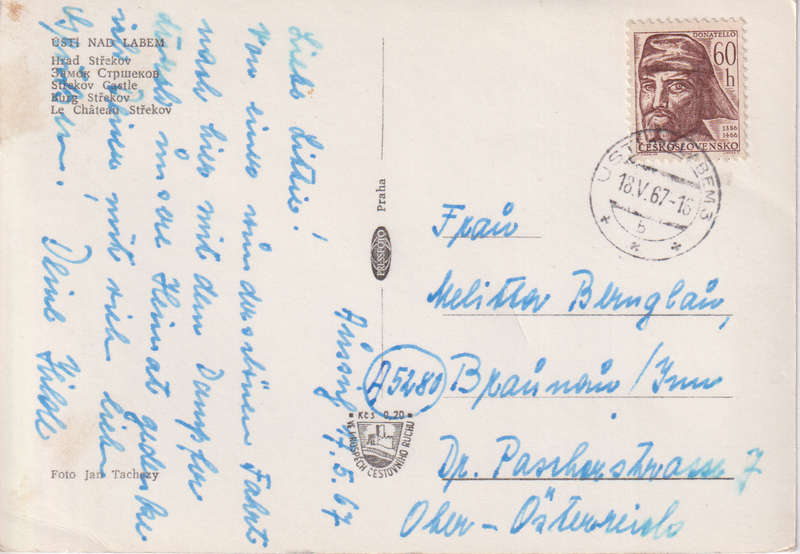 ÚSTÍ NAD LABEM
Hrad Střekov
Замок Стршеков
Střekov Castle
Burg Střekov
Le Château Střekov
Aussig 17.5.67
Liebe Litzie!
Von einer wunderschönen Fahrt
nach hier mit dem Dampfer
durch unsere Heimat gedenke
ich Deiner mit viel lieben
Grüßen!
Deine Hilde
Foto Jan Tachezy
PRESSFOTO
Praha
DONATELLO
60 h
1386
1466
ČESKOSLOVENSKO
ÚSTÍ N. LABEM 3
18.V.67-16
b
Kčs 0,20
VE PROSPĚCH CESTOVNÍHO RUCHU
Frau
Melitta Bernglau
A5280 Braunau/Inn
Dr. Pascherstrasse 7
Ober-Österreich